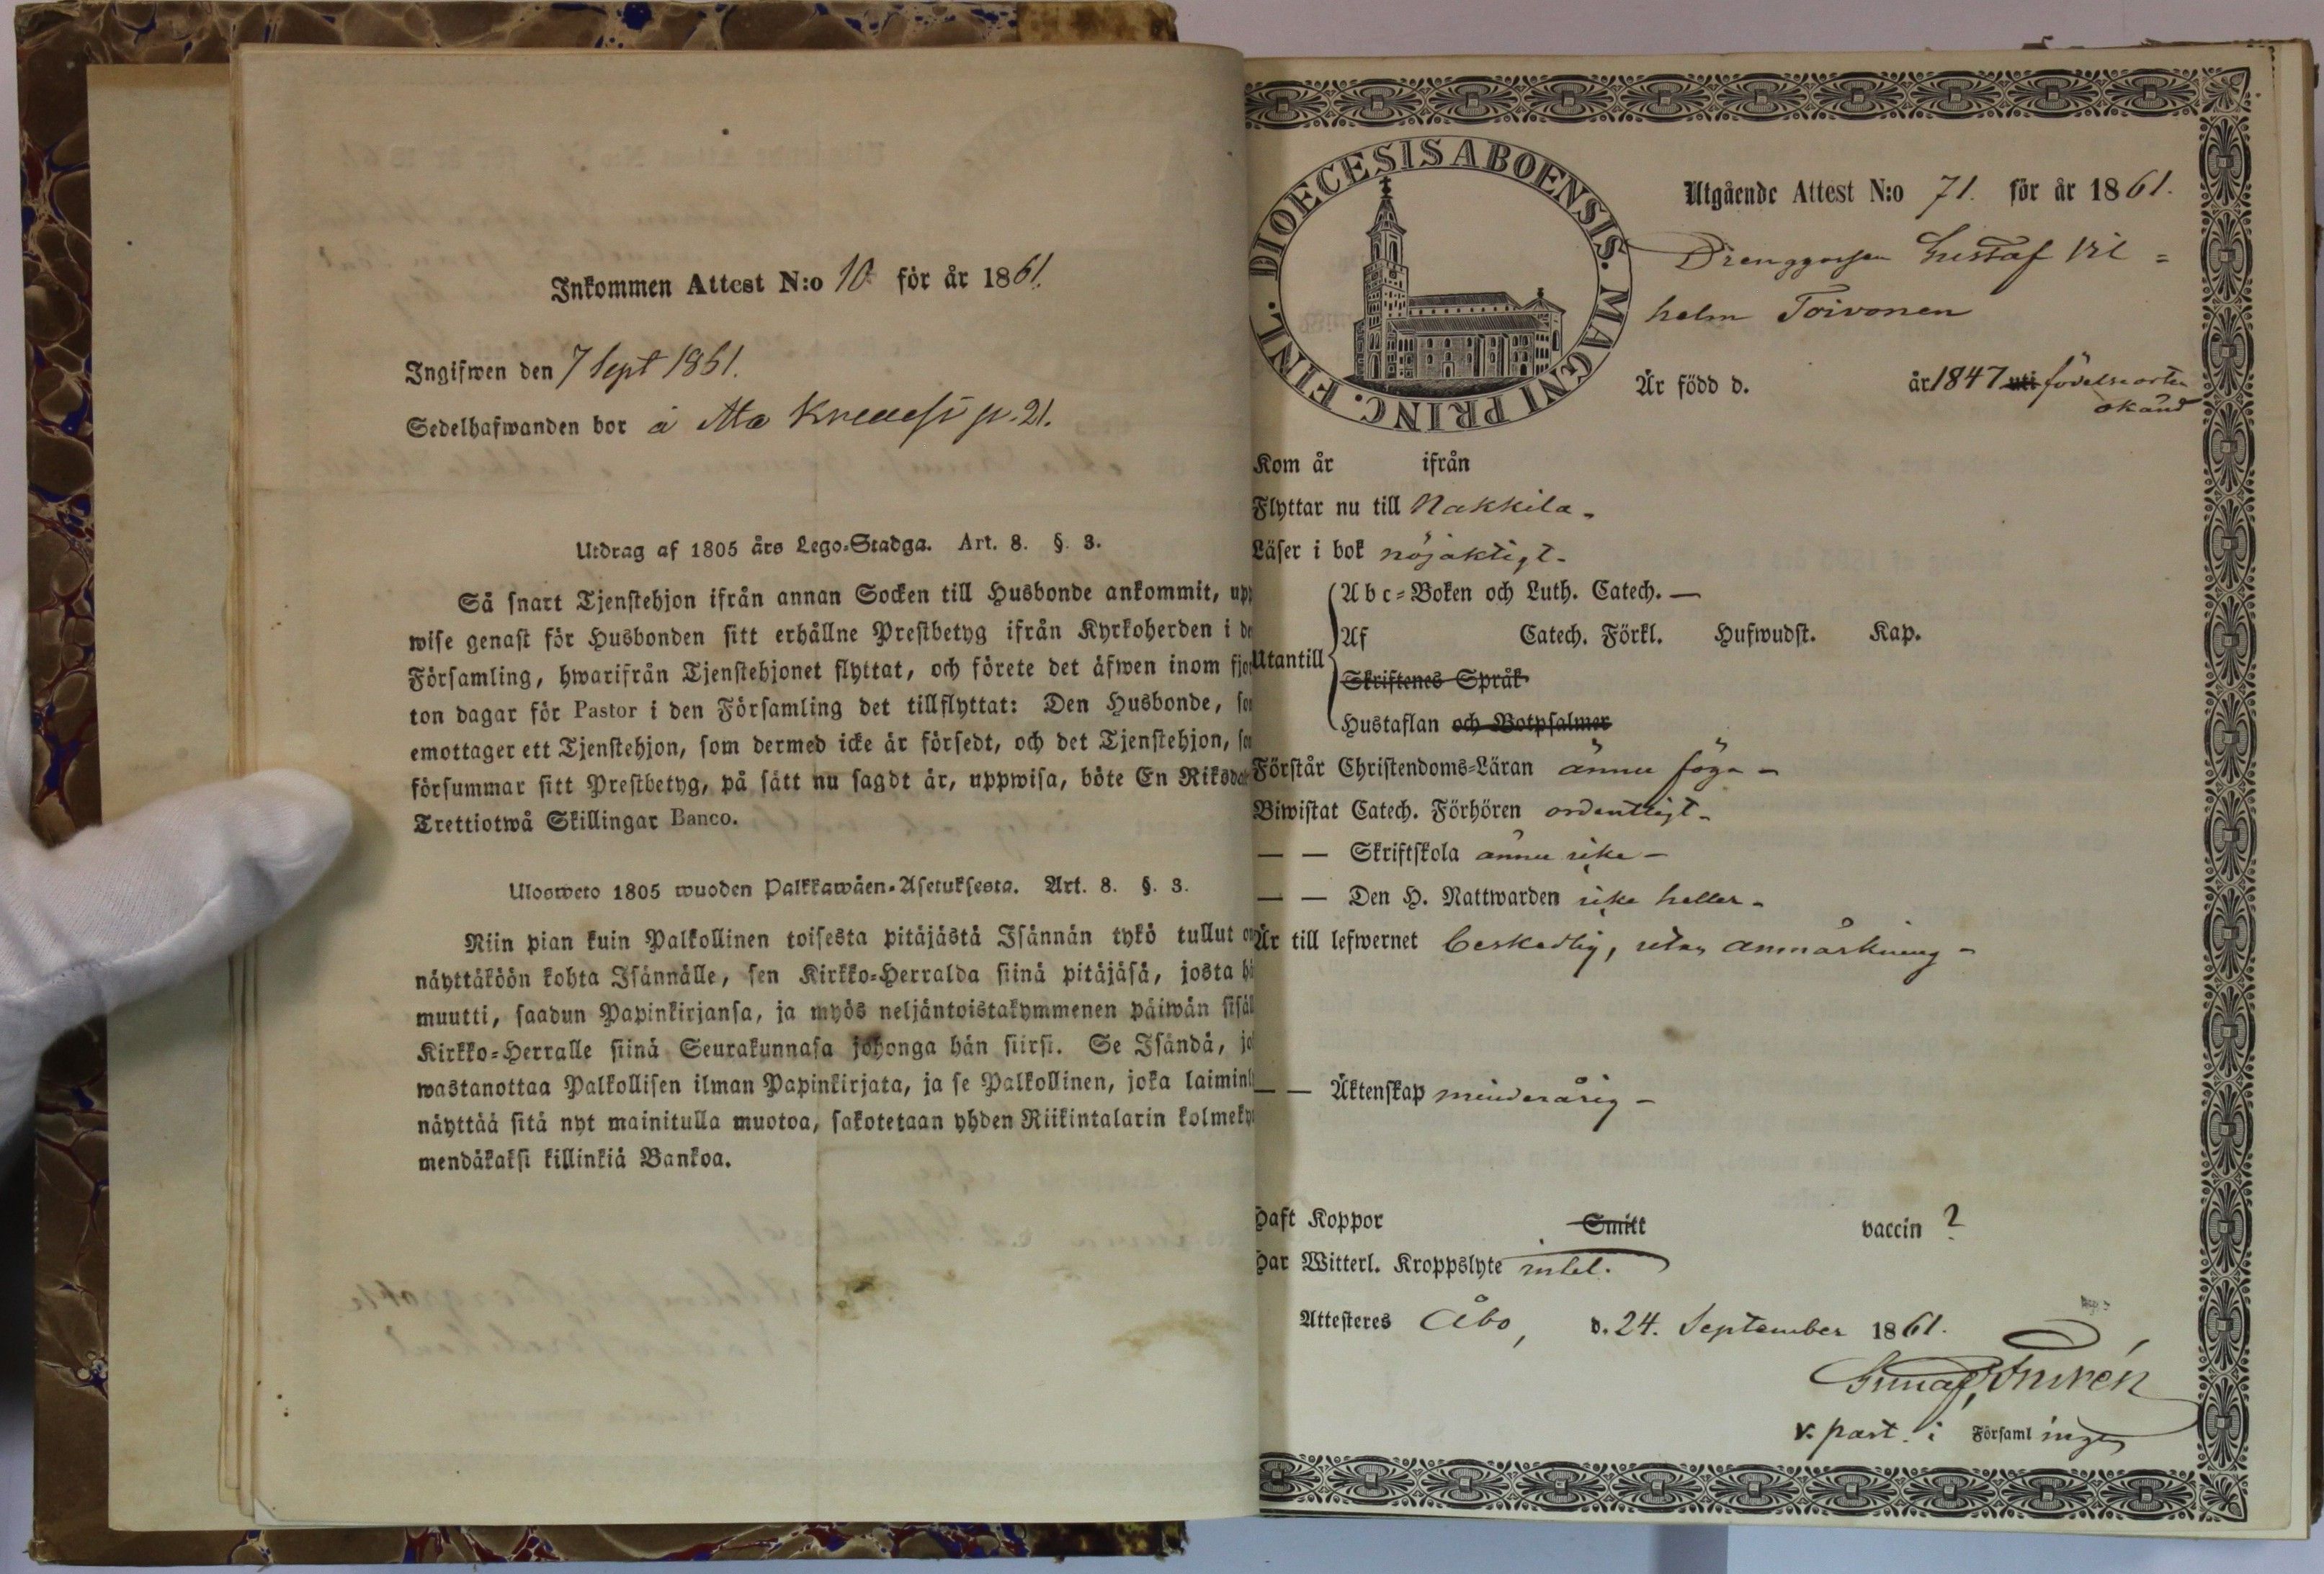 Inkommen Attest N:o 10 för år 1861.
Ingifwen den 7 Sept 1861.
Sedelhafwanden bor å p. 21.
Utdrag af 1805 års Lego-Stadga. Art. 8. §. 3.
Så snart Tjenstehjon ifrån annan Socken till Husbonde ankommit, upp
wise genast för Husbonden sitt erhållne Prestbetyg ifrån Kyrkoherden i de
Församling, hwarifrån Tjenstehjonet flyttat, och förete det äfwen inom fjor
ton dagar för Pastor i den Församling det tillflyttat: Den Husbonde, som
emottager ett Tjenstehjon, som dermed icke är försedt, och det Tjenstehjon, som
försummar sitt Prestbetyg, på sätt nu sagdt är, uppwisa, böte En Riksdaler
Trettiotwå Skillingar Banco.
Ulosweto 1805 wuoden Palkkawäen-Asetuksesta. Art. 8. §. 3.
Niin pian kuin Palkollinen toisesta pitäjästä Isännän tykö tullut on
näyttäköön kohta Isännälle, sen Kirkko-Herralda siinä pitäjäsä, josta hä
muutti, saadun Papinkirjansa, ja myös neljäntoistakymmenen päiwän sisäl
Kirkko-Herralle siinä Seurakunnasa johonga hän siirsi. Se Isändä, jo
wastanottaa Palkollisen ilman Papinkirjata, ja se Palkollinen, joka laiminly
näyttää sitä nyt mainitulla muotoa, sakotetaan yhden Riikintalarin kolmeky
mendäkaksi killinkiä Bankoa.
DIOECESIS ABOENSIS. MAGNI PRINC. FINL.
Utgående Attest N:o 71. för år 1861.
Drenggossen Gustaf Vil=
helm Toivonen
Är född d. år 1847 uti födelseorten
okänd
Kom år ifrån
Flyttar nu till Nakkila.
Läser i bok nöjaktigt.
Utantill
Abc-Boken och Luth. Catech. —
Af Catech. Förkl. Hufwudst. Kap.
Skriftenes Språk
Hustaflan och Botpsalmer
Förstår Christendoms-Läran ännu föga -
Biwistat Catech. Förhören ordentligt.
— — Skriftskola ännu icke —
— — Den H. Nattwarden icke heller.
Är till lefwernet beskedlig, utan anmärkning -
— — Äktenskap minderårig -
Haft Koppor Smitt vaccin ?
Har Witterl. Kroppslyte intet.
Attesteres Åbo, d. 24. September 1861.
v. past. i Församlingen